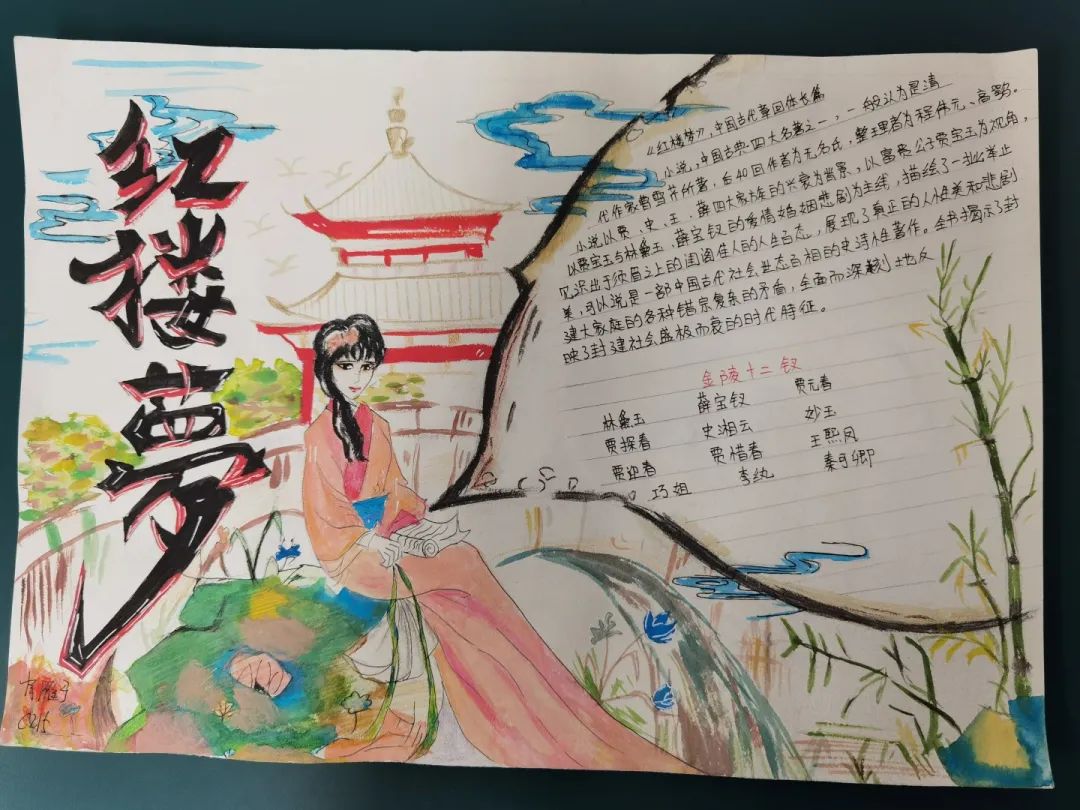 红楼夢
《红楼梦》,中国古代章回体长篇
小说,中国古典四大名著之一,一般认为是清
代作家曹雪芹所著,后40回作者为无名氏,整理者为程伟元、高鹗。
小说以贾、史、王、薛四大家族的兴衰为背景,以富贵公子贾宝玉为视角,
以贾宝玉与林黛玉、薛宝钗的爱情婚姻悲剧为主线,描绘了一批举止
见识出于须眉之上的闺阁佳人的人生百态,展现了真正的人性美和悲剧
美,可以说是一部中国古代社会世态百相的史诗性著作。全书揭示了封
建大家庭的各种错宗复杂的矛盾,全面而深刻地反
映了封建社会盛极而衰的时代特征。
金陵十二钗
林黛玉 薛宝钗 贾元春
贾探春 史湘云 妙玉
贾迎春 贾惜春 王熙凤
巧姐 李纨 秦可卿